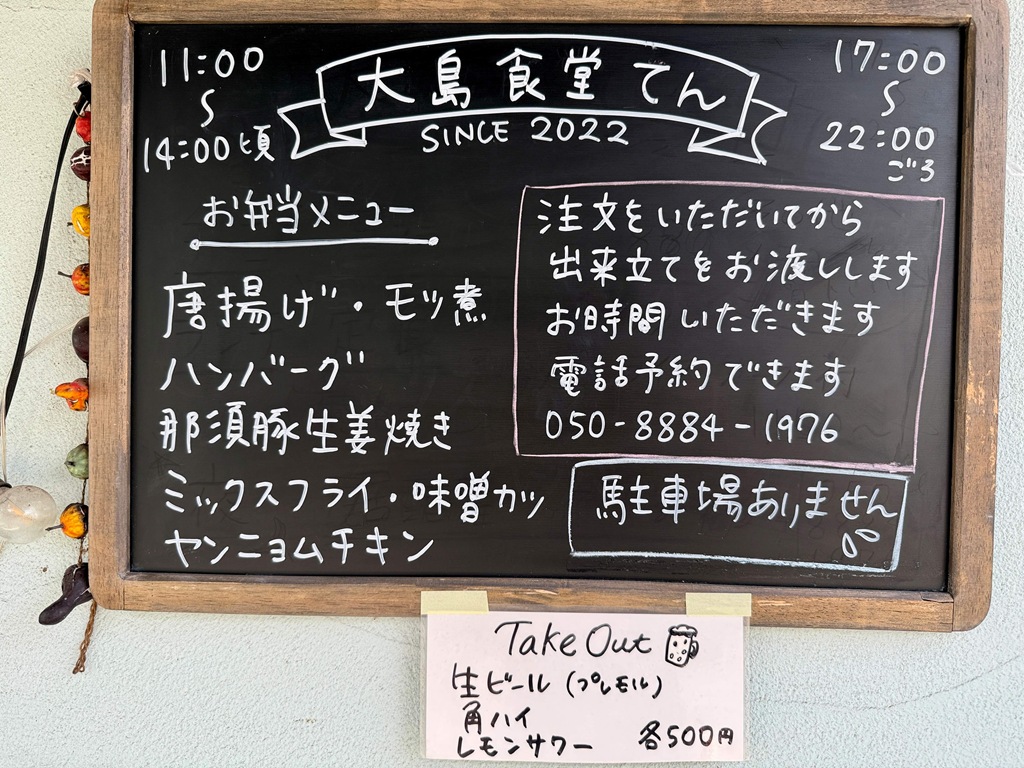 11:00
〜
14:00頃
大島食堂てん
SINCE 2022
17:00
〜
22:00
ごろ
お弁当メニュー
唐揚げ・モツ煮
ハンバーグ
那須豚生姜焼き
ミックスフライ・味噌カツ
ヤンニョムチキン
注文をいただいてから
出来立てをお渡しします
お時間いただきます
電話予約できます
050-8884-1976
駐車場ありません
Take Out
生ビール(プレモル)
角ハイ
レモンサワー 各500円